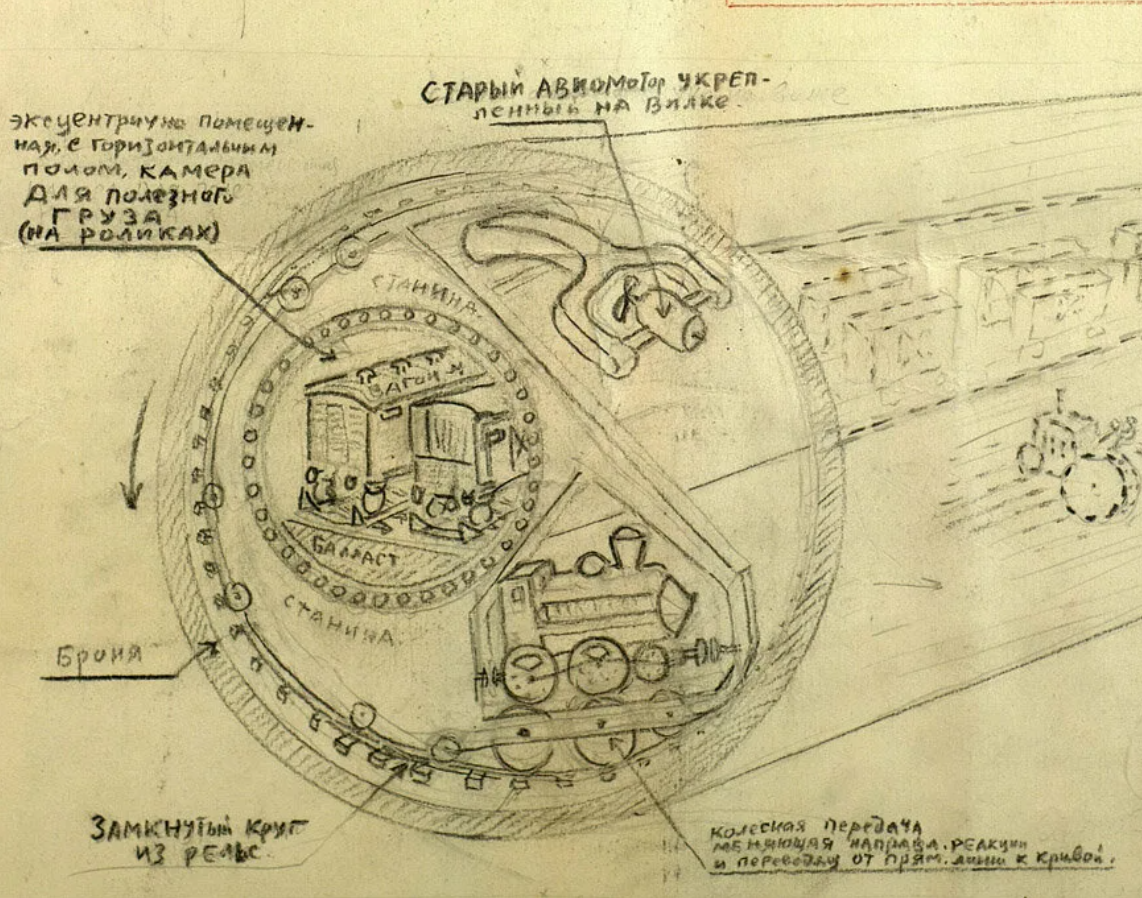 СТАРЫЙ АВИОМОТОР УКРЕП-
ЛЕННЫЙ НА ВИЛКЕ.
ЭКСЦЕНТРИЧНО ПОМЕЩЕН-
НАЯ, С ГОРИЗОНТАЛЬНЫМ
ПОЛОМ, КАМЕРА
ДЛЯ ПОЛЕЗНОГО
ГРУЗА
(НА РОЛИКАХ)
СТАНИНА.
ВАГОН
БАЛЛАСТ
СТАНИНА.
БРОНЯ
ЗАМКНУТЫЙ КРУГ
ИЗ РЕЛЬС.
КОЛЕСНАЯ ПЕРЕДАЧА
МЕНЯЮЩАЯ НАПРАВЛ. РЕАКЦИИ
И ПЕРЕВОДЯЩ ОТ ПРЯМ. ЛИНИИ К КРИВОЙ.